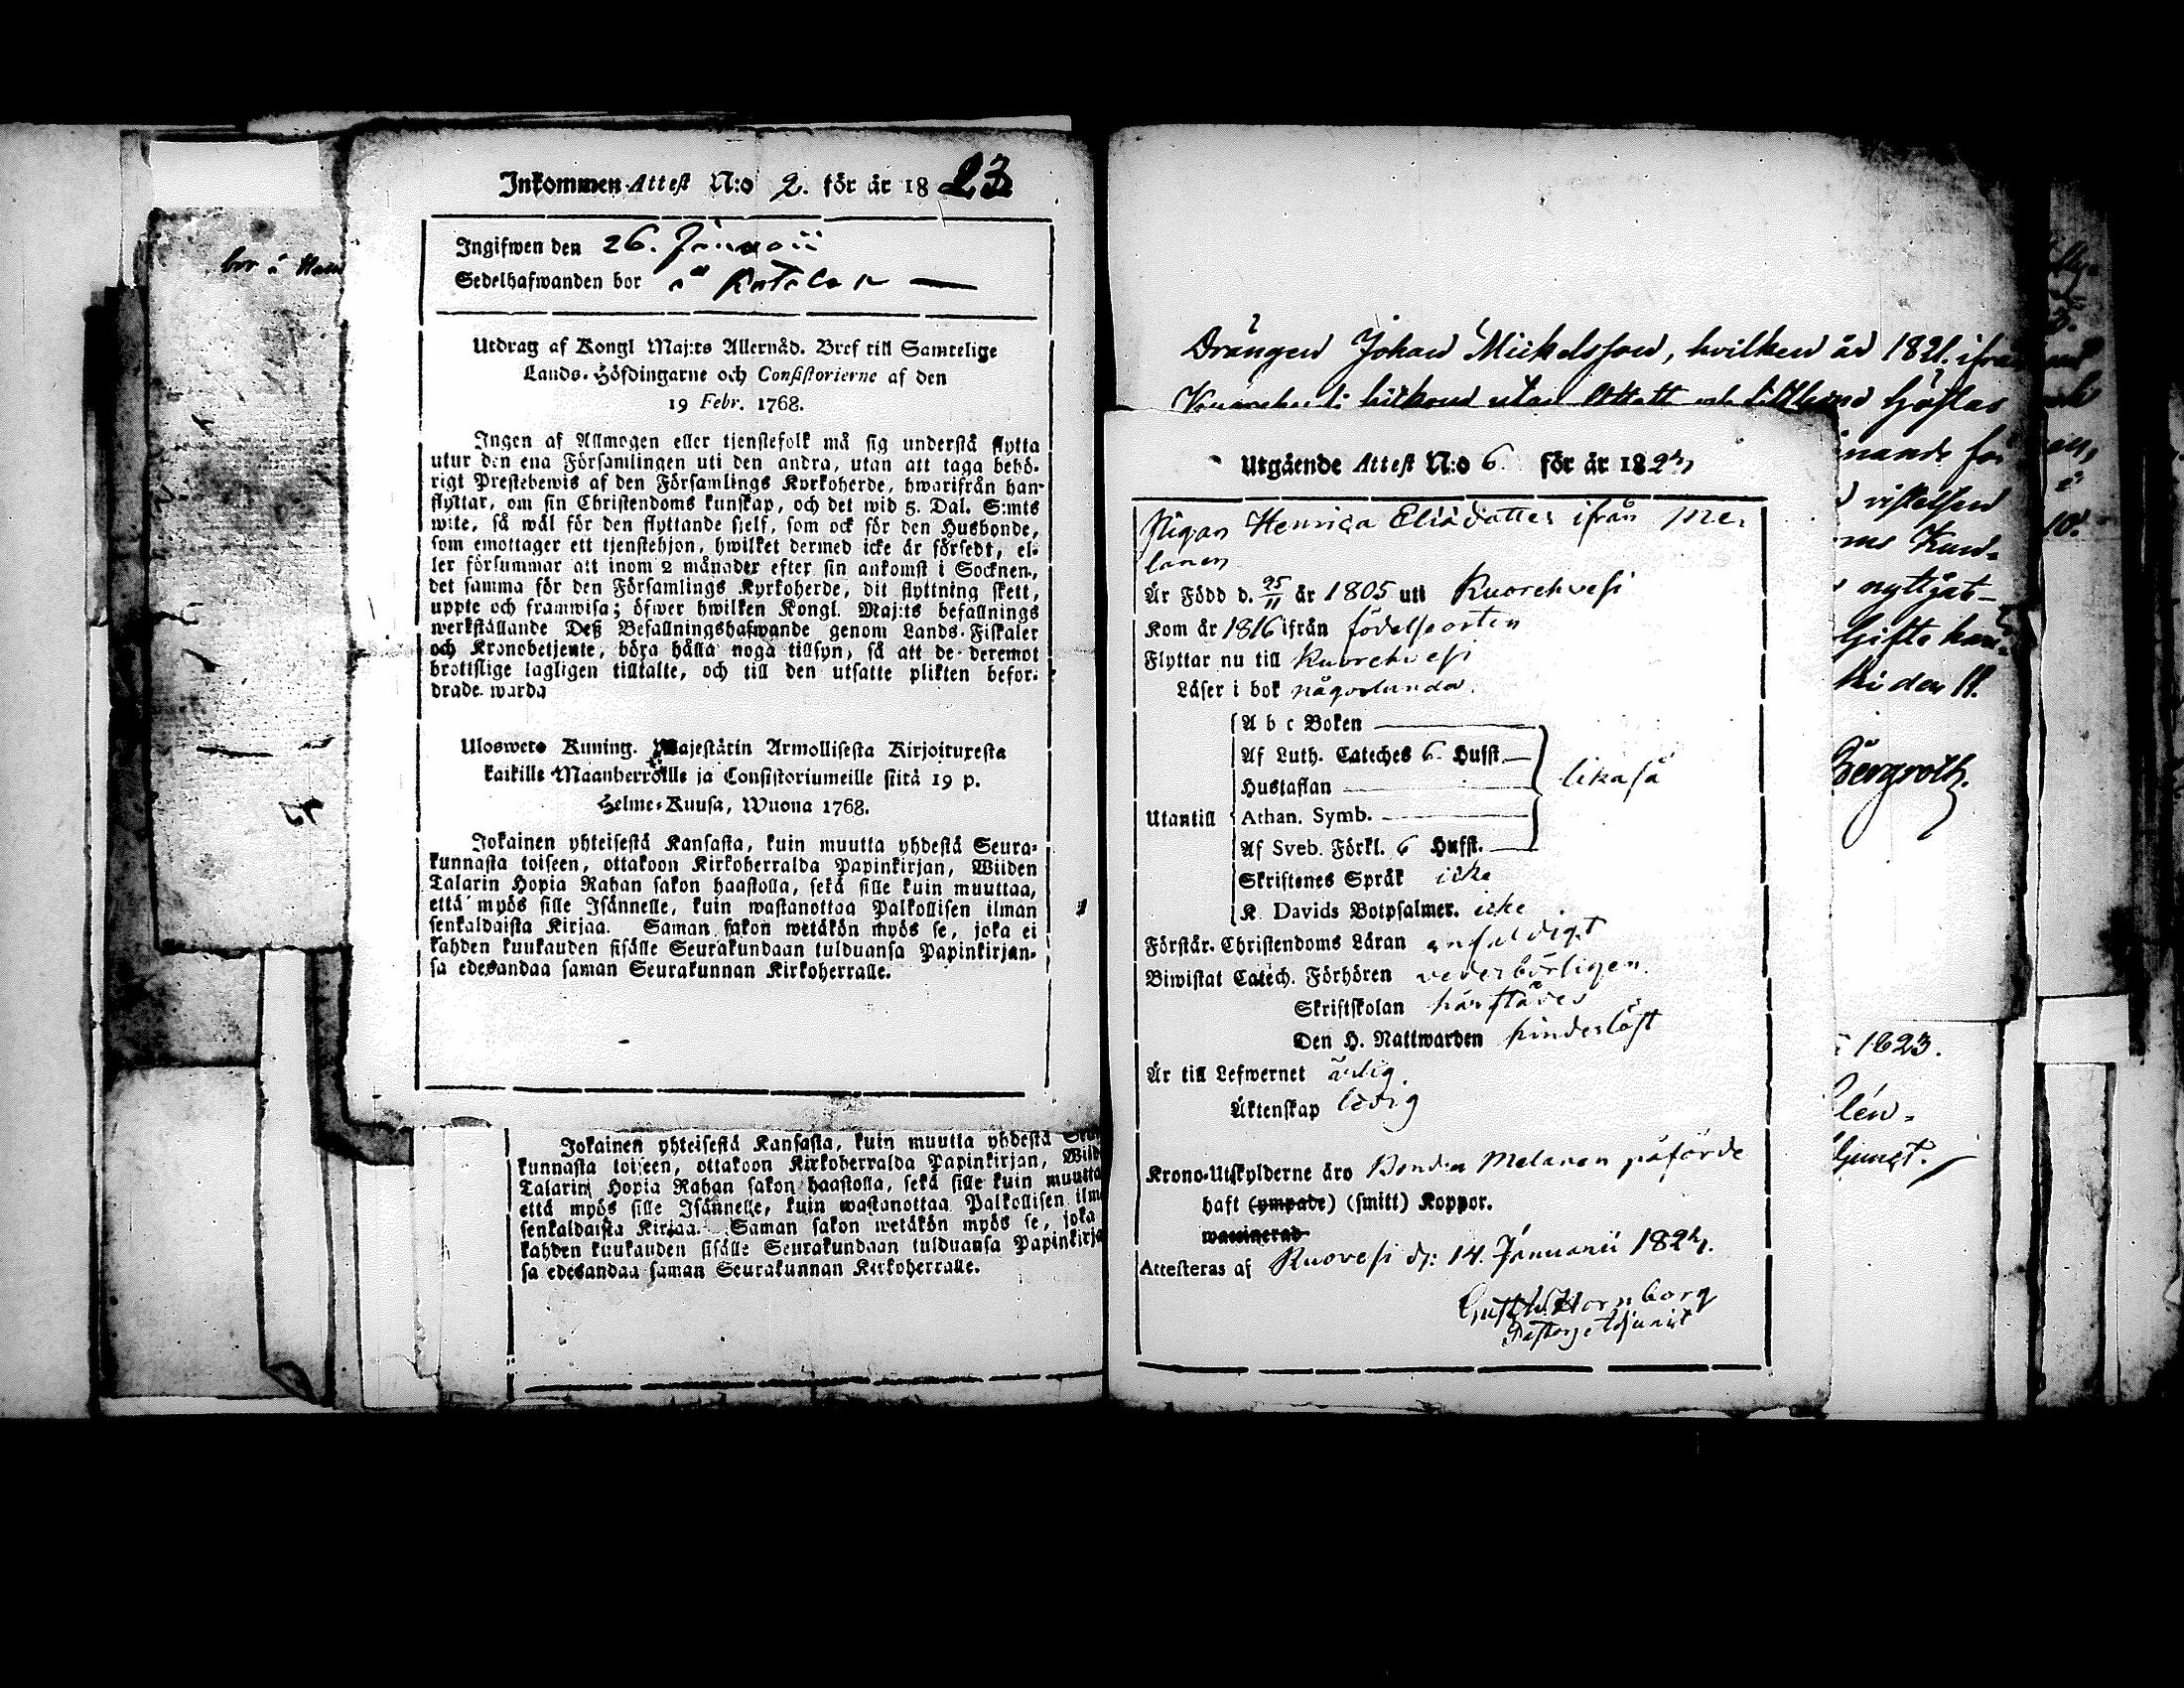 bor å
Inkommen Attest N:o 2. för år 1823
Ingifwen den 26. Januarii
Sedelhafwanden bor på Katala
Utdrag af Kongl Maj:ts Allernåd. Bref till Samtelige
Lands-Höfdingarne och Consistorierne af den
19 Febr. 1768.
Ingen af Allmogen eller tjenstefolk må sig understå flytta
utur den ena Församlingen uti den andra, utan att taga behö-
rigt Prestebewis af den Församlings Kyrkoherde, hwarifrån han
flyttar, om sin Christendoms kunskap, och det wid 5. Dal. S:mts
wite, så wäl för den flyttande sielf, som ock för den Husbonde,
som emottager ett tjenstehjon, hwilket dermed icke är försedt, el-
ler försummar att inom 2 månader efter sin ankomst i Socknen,
det samma för den Församlings Kyrkoherde, dit flyttning skett,
uppte och framwisa; öfwer hwilken Kongl. Maj:ts befallnings
werkställande Deß Befallningshafwande genom Lands-Fiskaler
och Kronobetjente, böra hålla noga tillsyn, så att de deremot
brottslige lagligen tilltalte, och till den utsatte plikten befor-
drade warda
Ulosweto Kuning. Majestätin Armollisesta Kirjoituxesta
kaikille Maanherroille ja Consistoriumeille siitä 19 p.
Helme-Kuusa, Wuona 1768.
Jokainen yhteisestä Kansasta, kuin muutta yhdestä Seura-
kunnasta toiseen, ottakoon Kirkoherralda Papinkirjan, Wiiden
Talarin Hopia Rahan sakon haastolla, sekä sille kuin muuttaa,
että myös sille Isännelle, kuin wastanottaa Palkollisen ilman
senkaldaista Kirjaa. Saman sakon wetäkön myös se, joka ei
kahden kuukauden sisälle Seurakundaan tulduansa Papinkirjan-
sa edesandaa saman Seurakunnan Kirkoherralle.
Jokainen yhteisestä Kansasta, kuin muutta yhdestä
kunnasta toiseen, ottakoon Kirkoherralda Papinkirjan, Wiid
Talarin Hopia Rahan sakon haastolla, sekä sille kuin muutta
että myös sille Isännelle, kuin wastanottaa Palkollisen ilm
senkaldaista Kirjaa. Saman sakon wetäkön myös se, joka
kahden kuukauden sisälle Seurakundaan tulduansa Papinkirja
sa edesandaa saman Seurakunnan Kirkoherralle.
Drängen Johan Mickelsson, hvilken år 1821. ifrån
hitkom utan Attest och tillkom höstas
Utgående Attest N:o 6. för år 1824
Pigan Henrica Eliædotter ifrån Me-
lanen
Är Född d. 25/11 år 1805 uti Kuorehvesi
Kom år 1816 ifrån födelseorten
Flyttar nu till Kuorehvesi
Läser i bok någorlunda.
A b c Boken
Af Luth. Cateches 6 Hufst.
Hustaflan
Utantill Athan. Symb.
likaså
Af Sveb. Förkl. 6 Hufst.
Skriftenes Språk icke
K. Davids Botpsalmer. icke
Förstår. Christendoms Läran enfaldigt
Biwistat Catech. Förhören vederbörligen.
Skriftskolan härstädes
Den H. Nattwarden hinderlöst
Är till Lefwernet ärlig.
Äktenskap ledig
Krono-Utskylderne äro Bonden Melanen påförde
haft (ympade) (smitt) Koppor.
waccinerad
Attesteras af Ruovesi d: 14. Januarii 1824.
Gust. W. Hornborg
Pastors Adjunct
vistelsen
nyttjat
Gifte
ki den 11.
Bergroth.
1823.